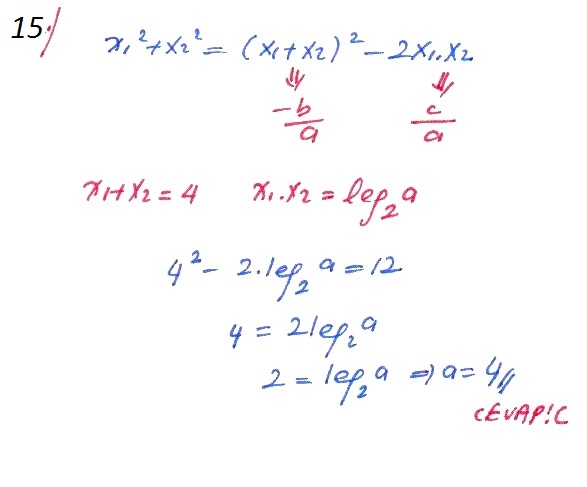 15)
x₁² + x₂² = (x₁ + x₂)² − 2x₁.x₂
⇓ ⇓
−b/a c/a
x₁ + x₂ = 4 x₁.x₂ = log₂a
4² − 2.log₂a = 12
4 = 2log₂a
2 = log₂a ⇒ a = 4//
CEVAP!C